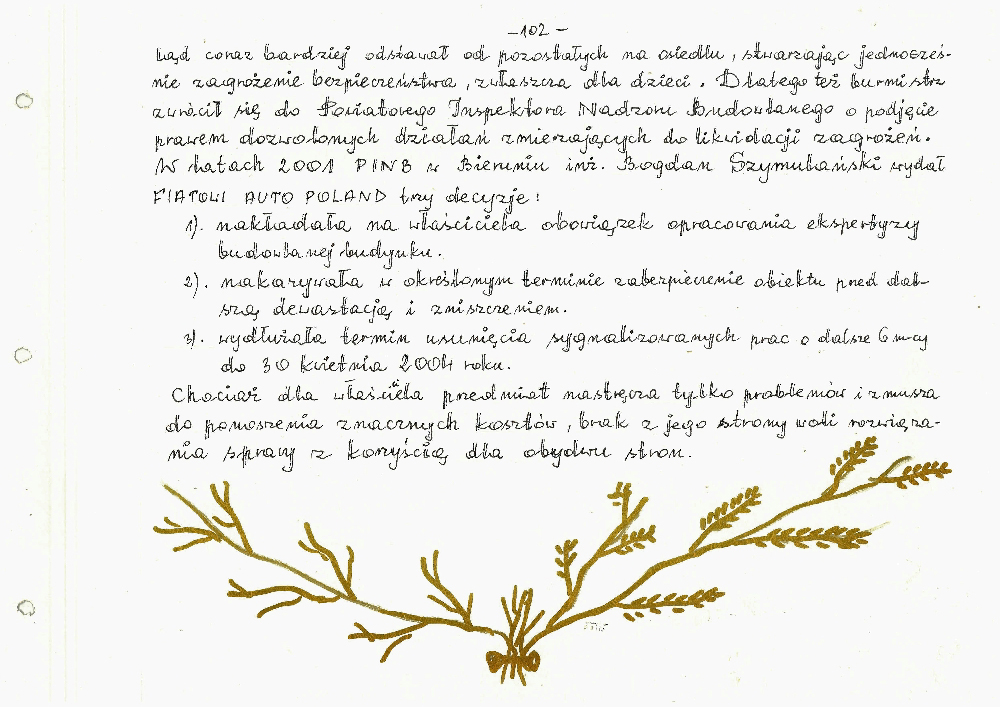 -102-
ląd coraz bardziej odstawał od pozostałych na osiedlu, stwarzając jednocześ-
nie zagrożenie bezpieczeństwa, zwłaszcza dla dzieci. Dlatego też burmistrz
zwrócił się do Powiatowego Inspektora Nadzoru Budowlanego o podjęcie
prawem dozwolonych działań zmierzających do likwidacji zagrożeń.
W latach 2001 PINB w Bieruniu inż. Bogdan Szymulański wydał
FIATOWI AUTO POLAND trzy decyzje:
1). nakładała na właściciela obowiązek opracowania ekspertyzy
budowlanej budynku.
2). nakazywała w określonym terminie zabezpieczenie obiektu pred dal-
szą dewastacją i zniszczeniem.
3). wydłużała termin usunięcia sygnalizowanych prac o dalsze 6 m-cy
do 30 kwietnia 2004 roku.
Chociaż dla właściela przedmiot nastręcza tylko problemów i zmusza
do ponoszenia znacznych kosztów, brak z jego strony woli rozwiąza-
nia sprawy z korzyścią dla obydwu stron.